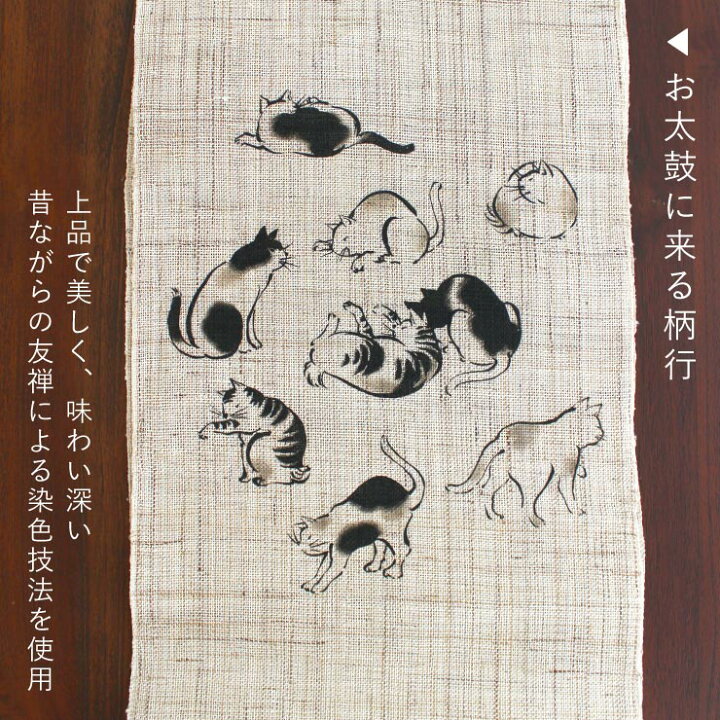 ◀お太鼓に来る柄行
上品で美しく、味わい深い
昔ながらの友禅による染色技法を使用